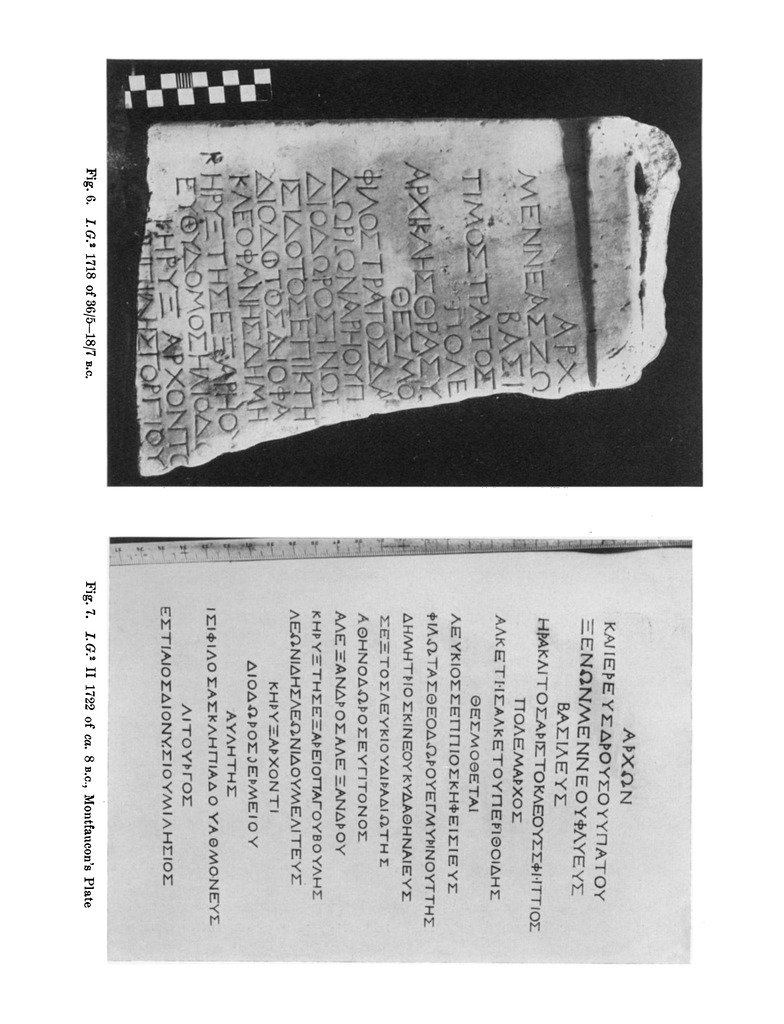 ΑΡΧ
ΜΕΝΝΕΑΣΖΩ
ΒΑΣΙ
ΤΙΜΟΣΤΡΑΤΟΣ
ΠΟΛΕ
ΑΡΧΙΚΛΗΣΘΡΑΣΥ
ΘΕΣΜΟ
ΦΙΛΟΣΤΡΑΤΟΣΔΑ
ΔΩΡΙΩΝΑΡΗΟΥΠ
ΔΙΟΔΩΡΟΣΗΝΟΙ
ΙΣΙΔΟΤΟΣΕΠΙΚΤΗ
ΔΙΟΔΟΤΟΣΔΙΟΦΑ
ΚΛΕΟΦΑΝΗΣΔΗΜΗ
ΚΗΡΥΞΤΗΣΕΞΑΡΗΟ
ΕΥΘΥΔΟΜΟΣΗΛΙΟΔ
ΚΗΡΥΞ ΑΡΧΟΝΤΟ
Fig. 6. I.G.² 1718 of 36/5–18/7 B.C.
ΑΡΧΩΝ
ΚΑΙΙΕΡΕΥΣΔΡΟΥΣΟΥΥΠΑΤΟΥ
ΞΕΝΩΝΜΕΝΝΕΟΥΦΛΥΕΥΣ
ΒΑΣΙΛΕΥΣ
ΗΡΑΚΛΙΤΟΣΑΡΙΣΤΟΚΛΕΟΥΣΣΦΗΤΤΙΟΣ
ΠΟΛΕΜΑΡΧΟΣ
ΑΛΚΕΤΗΣΑΛΚΕΤΟΥΠΕΡΙΘΟΙΔΗΣ
ΘΕΣΜΟΘΕΤΑΙ
ΛΕΥΚΙΟΣΣΕΠΠΙΟΣΚΗΦΕΙΣΙΕΥΣ
ΦΙΛΩΤΑΣΘΕΟΔΩΡΟΥΕΓΜΥΡΙΝΟΥΤΤΗΣ
ΔΗΜΗΤΡΙΟΣΚΙΝΕΟΥΚΥΔΑΘΗΝΑΙΕΥΣ
ΣΕΞΤΟΣΛΕΥΚΙΟΥΔΙΡΑΔΙΩΤΗΣ
ΑΘΗΝΟΔΩΡΟΣΕΥΓΙΤΟΝΟΣ
ΑΛΕΞΑΝΔΡΟΣΑΛΕΞΑΝΔΡΟΥ
ΚΗΡΥΞΤΗΣΕΞΑΡΕΙΟΠΑΓΟΥΒΟΥΛΗΣ
ΛΕΩΝΙΔΗΣΛΕΩΝΙΔΟΥΜΕΛΙΤΕΥΣ
ΚΗΡΥΞΑΡΧΟΝΤΙ
ΔΙΟΔΩΡΟΣ)ΕΡΜΕΙΟΥ
ΑΥΛΗΤΗΣ
ΙΣΙΦΙΛΟΣΑΣΚΛΗΠΙΑΔΟΥΑΘΜΟΝΕΥΣ
ΛΙΤΟΥΡΓΟΣ
ΕΣΤΙΑΙΟΣΔΙΟΝΥΣΙΟΥΜΙΛΗΣΙΟΣ
Fig. 7. I.G.² II 1722 of ca. 8 B.C., Montfaucon's Plate